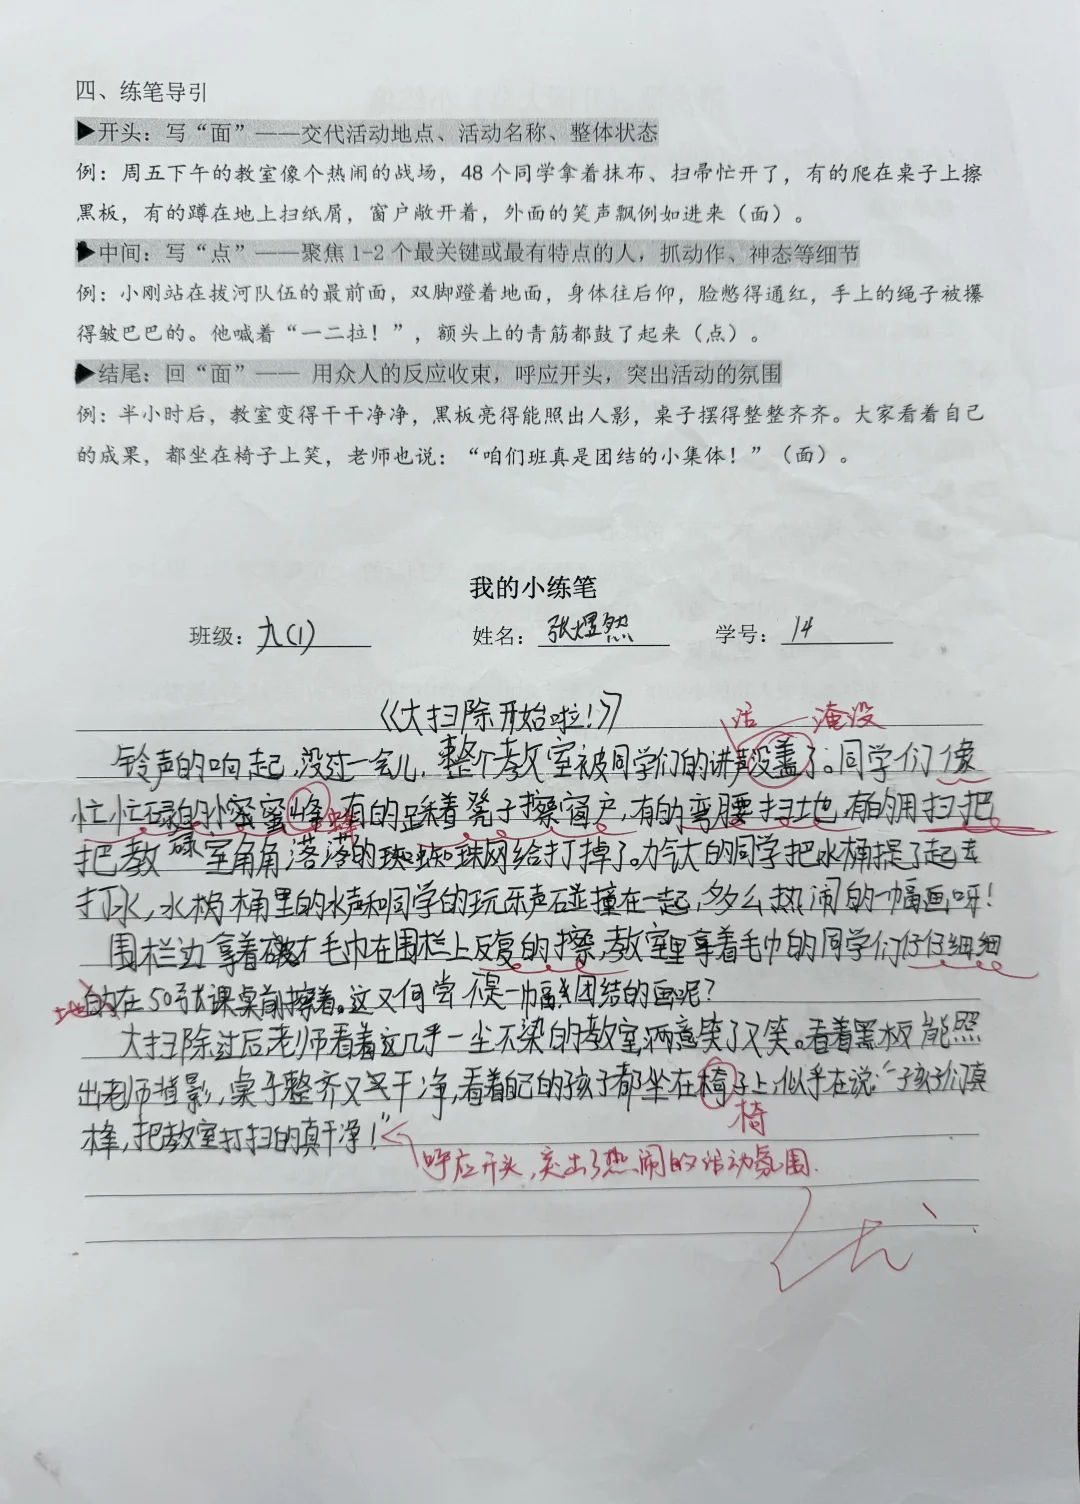 四、练笔导引
▶开头：写“面”——交代活动地点、活动名称、整体状态
例：周五下午的教室像个热闹的战场，48个同学拿着抹布、扫帚忙开了，有的爬在桌子上擦
黑板，有的蹲在地上扫纸屑，窗户敞开着，外面的笑声飘例如进来（面）。
▶中间：写“点”——聚焦1-2个最关键或最有特点的人，抓动作、神态等细节
例：小刚站在拔河队伍的最前面，双脚蹬着地面，身体往后仰，脸憋得通红，手上的绳子被攥
得皱巴巴的。他喊着“一二拉！”，额头上的青筋都鼓了起来（点）。
▶结尾：回“面”—— 用众人的反应收束，呼应开头，突出活动的氛围
例：半小时后，教室变得干干净净，黑板亮得能照出人影，桌子摆得整整齐齐。大家看着自己
的成果，都坐在椅子上笑，老师也说：“咱们班真是团结的小集体！”（面）。
我的小练笔
班级：九(1) 姓名：张煜然 学号：14
《大扫除开始啦！》
话 淹没
铃声的响起，没过一会儿，整个教室被同学们的讲声没盖了。同学们像
忙忙碌的小蜜蜜峰，有的踩着凳子擦窗户，有的弯腰扫地，有的用扫把
蜂
把教室角角落落的蜘蛛网给打掉了。力气大的同学把水桶提了起去
打水，水桶里的水声和同学的玩乐声碰撞在一起，多么热闹的一幅画呀！
围栏边拿着毛巾在围栏上反复的擦，教室里拿着毛巾的同学们仔仔细细
地
的在50张课桌前擦着。这又何尝不是一幅团结的画呢？
大扫除过后老师看着这几乎一尘不染的教室，满意笑了又笑。看着黑板能照
出老师背影，桌子整齐又干净，看着自己的孩子都坐在椅子上，似乎在说：“孩子们真
棒，把教室打扫的真干净！”
椅
呼应开头，突出了热闹的活动氛围.
优